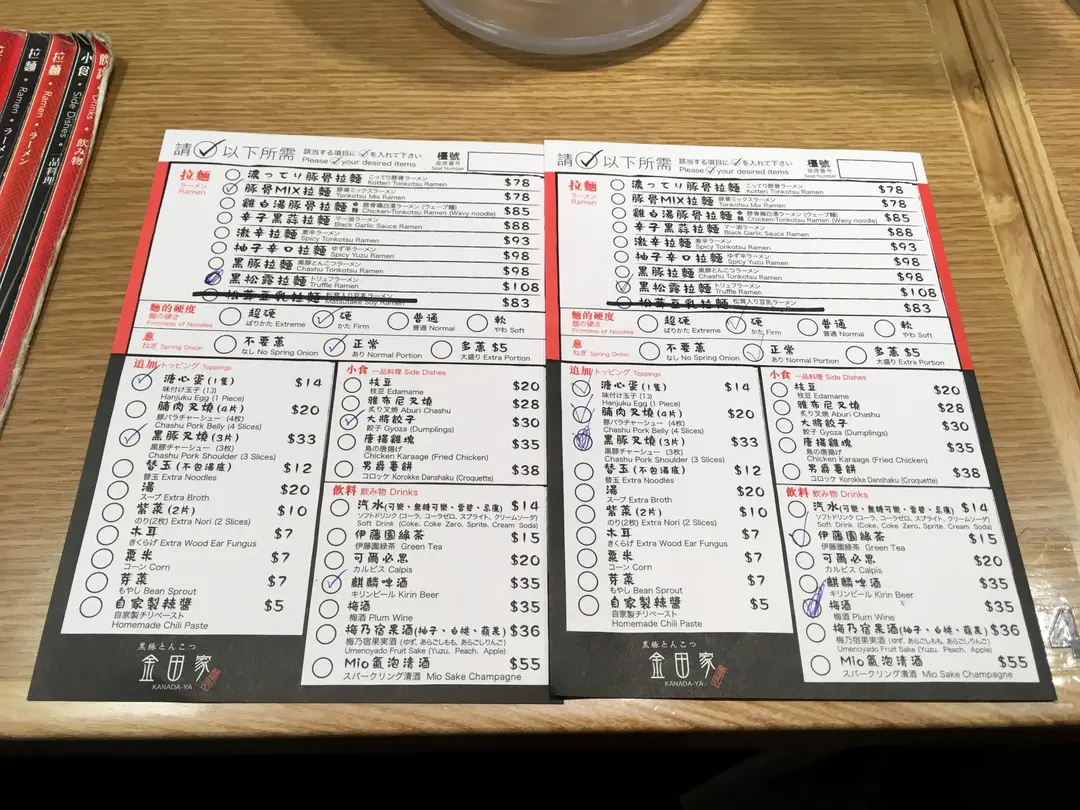 拉麵 • Ramen • ラーメン
拉麵 • Ramen • ラーメン
小食 • Side Dishes • 一品料理
飲料 • Drinks • 飲み物
請 以下所需
該当する項目に を入れて下さい
Please your desired items
檯號
座席番号
Seat Number
拉麵
ラーメン
Ramen
濃ってり豚骨拉麵 こってり豚骨ラーメン $78
Kotteri Tonkotsu Ramen
豚骨MIX拉麵 豚骨ミックスラーメン $78
Tonkotsu Mix Ramen
雞白湯豚骨拉麵 豚骨鶏白湯ラーメン(ウェーブ麺) $85
Chicken-Tonkotsu Ramen (Wavy noodle)
辛子黑蒜拉麵 マー油ラーメン $88
Black Garlic Sauce Ramen
激辛拉麵 激辛ラーメン $93
Spicy Tonkotsu Ramen
柚子辛口拉麵 ゆず辛ラーメン $98
Spicy Yuzu Ramen
黑豚拉麵 黒豚とんこつラーメン $98
Chashu Tonkotsu Ramen
黑松露拉麵 トリュフラーメン $108
Truffle Ramen
松茸豆乳拉麵 松茸入り豆乳ラーメン $83
Matsutake Soy Ramen
麵的硬度
麺の硬さ
Firmness of Noodles
超硬
ばりかた Extreme
硬
かた Firm
普通
普通 Normal
軟
やわ Soft
蔥
ねぎ Spring Onion
不要蔥
なし No Spring Onion
正常
あり Normal Portion
多蔥 $5
大盛り Extra Portion
追加 トッピング Toppings
溏心蛋(1隻) $14
味付け玉子 (1コ)
Hanjuku Egg (1 Piece)
腩肉叉燒(4片) $20
豚バラチャーシュー (4枚)
Chashu Pork Belly (4 Slices)
黑豚叉燒(3片) $33
黒豚チャーシュー (3枚)
Chashu Pork Shoulder (3 Slices)
替玉(不包湯底) $12
替玉 Extra Noodles
湯 $20
スープ Extra Broth
紫菜(2片) $10
のり(2枚) Extra Nori (2 Slices)
木耳 $7
きくらげ Extra Wood Ear Fungus
粟米 $7
コーン Corn
芽菜 $7
もやし Bean Sprout
自家製辣醬 $5
自家製チリペースト
Homemade Chili Paste
小食 一品料理 Side Dishes
枝豆 $20
枝豆 Edamame
雅布尼叉燒 $28
炙り叉焼 Aburi Chashu
大將餃子 $30
餃子 Gyoza (Dumplings)
唐揚雞塊 $35
鳥の唐揚げ
Chicken Karaage (Fried Chicken)
男爵薯餅 $38
コロッケ Korokke Danshaku (Croquette)
飲料 飲み物 Drinks
汽水(可樂・無糖可樂・雪碧・忌廉) $14
ソフトドリンク (コーラ、コーラゼロ、スプライト、クリームソーダ)
Soft Drink (Coke, Coke Zero, Sprite, Cream Soda)
伊藤園綠茶 $15
伊藤園緑茶 Green Tea
可爾必思 $20
カルピス Calpis
麒麟啤酒 $35
キリンビール Kirin Beer
梅酒 $35
梅酒 Plum Wine
梅乃宿果酒(柚子・白桃・蘋果) $36
梅乃宿果実酒 (ゆず、あらごしもも、あらごしりんご)
Umenoyado Fruit Sake (Yuzu, Peach, Apple)
Mio氣泡清酒 $55
スパークリング清酒 Mio Sake Champagne
黒豚とんこつ
金田家
KANADA-YA
請 以下所需
該当する項目に を入れて下さい
Please your desired items
檯號
座席番号
Seat Number
拉麵
ラーメン
Ramen
濃ってり豚骨拉麵 こってり豚骨ラーメン $78
Kotteri Tonkotsu Ramen
豚骨MIX拉麵 豚骨ミックスラーメン $78
Tonkotsu Mix Ramen
雞白湯豚骨拉麵 豚骨鶏白湯ラーメン(ウェーブ麺) $85
Chicken-Tonkotsu Ramen (Wavy noodle)
辛子黑蒜拉麵 マー油ラーメン $88
Black Garlic Sauce Ramen
激辛拉麵 激辛ラーメン $93
Spicy Tonkotsu Ramen
柚子辛口拉麵 ゆず辛ラーメン $98
Spicy Yuzu Ramen
黑豚拉麵 黒豚とんこつラーメン $98
Chashu Tonkotsu Ramen
黑松露拉麵 トリュフラーメン $108
Truffle Ramen
松茸豆乳拉麵 松茸入り豆乳ラーメン $83
麵的硬度
麺の硬さ
Firmness of Noodles
超硬
ばりかた Extreme
硬
かた Firm
普通
普通 Normal
軟
やわ Soft
蔥
ねぎ Spring Onion
不要蔥
なし No Spring Onion
正常
あり Normal Portion
多蔥 $5
大盛り Extra Portion
追加 トッピング Toppings
溏心蛋(1隻) $14
味付け玉子 (1コ)
Hanjuku Egg (1 Piece)
腩肉叉燒(4片) $20
豚バラチャーシュー (4枚)
Chashu Pork Belly (4 Slices)
黑豚叉燒(3片) $33
黒豚チャーシュー (3枚)
Chashu Pork Shoulder (3 Slices)
替玉(不包湯底) $12
替玉 Extra Noodles
湯 $20
スープ Extra Broth
紫菜(2片) $10
のり(2枚) Extra Nori (2 Slices)
木耳 $7
きくらげ Extra Wood Ear Fungus
粟米 $7
コーン Corn
芽菜 $7
もやし Bean Sprout
自家製辣醬 $5
自家製チリペースト
Homemade Chili Paste
小食 一品料理 Side Dishes
枝豆 $20
枝豆 Edamame
雅布尼叉燒 $28
炙り叉焼 Aburi Chashu
大將餃子 $30
餃子 Gyoza (Dumplings)
唐揚雞塊 $35
鳥の唐揚げ
Chicken Karaage (Fried Chicken)
男爵薯餅 $38
コロッケ Korokke Danshaku (Croquette)
飲料 飲み物 Drinks
汽水(可樂・無糖可樂・雪碧・忌廉) $14
ソフトドリンク (コーラ、コーラゼロ、スプライト、クリームソーダ)
Soft Drink (Coke, Coke Zero, Sprite, Cream Soda)
伊藤園綠茶 $15
伊藤園緑茶 Green Tea
可爾必思 $20
カルピス Calpis
麒麟啤酒 $35
キリンビール Kirin Beer
梅酒 $35
梅酒 Plum Wine
梅乃宿果酒(柚子・白桃・蘋果) $36
梅乃宿果実酒 (ゆず、あらごしもも、あらごしりんご)
Umenoyado Fruit Sake (Yuzu, Peach, Apple)
Mio氣泡清酒 $55
スパークリング清酒 Mio Sake Champagne
黒豚とんこつ
金田家
KANADA-YA